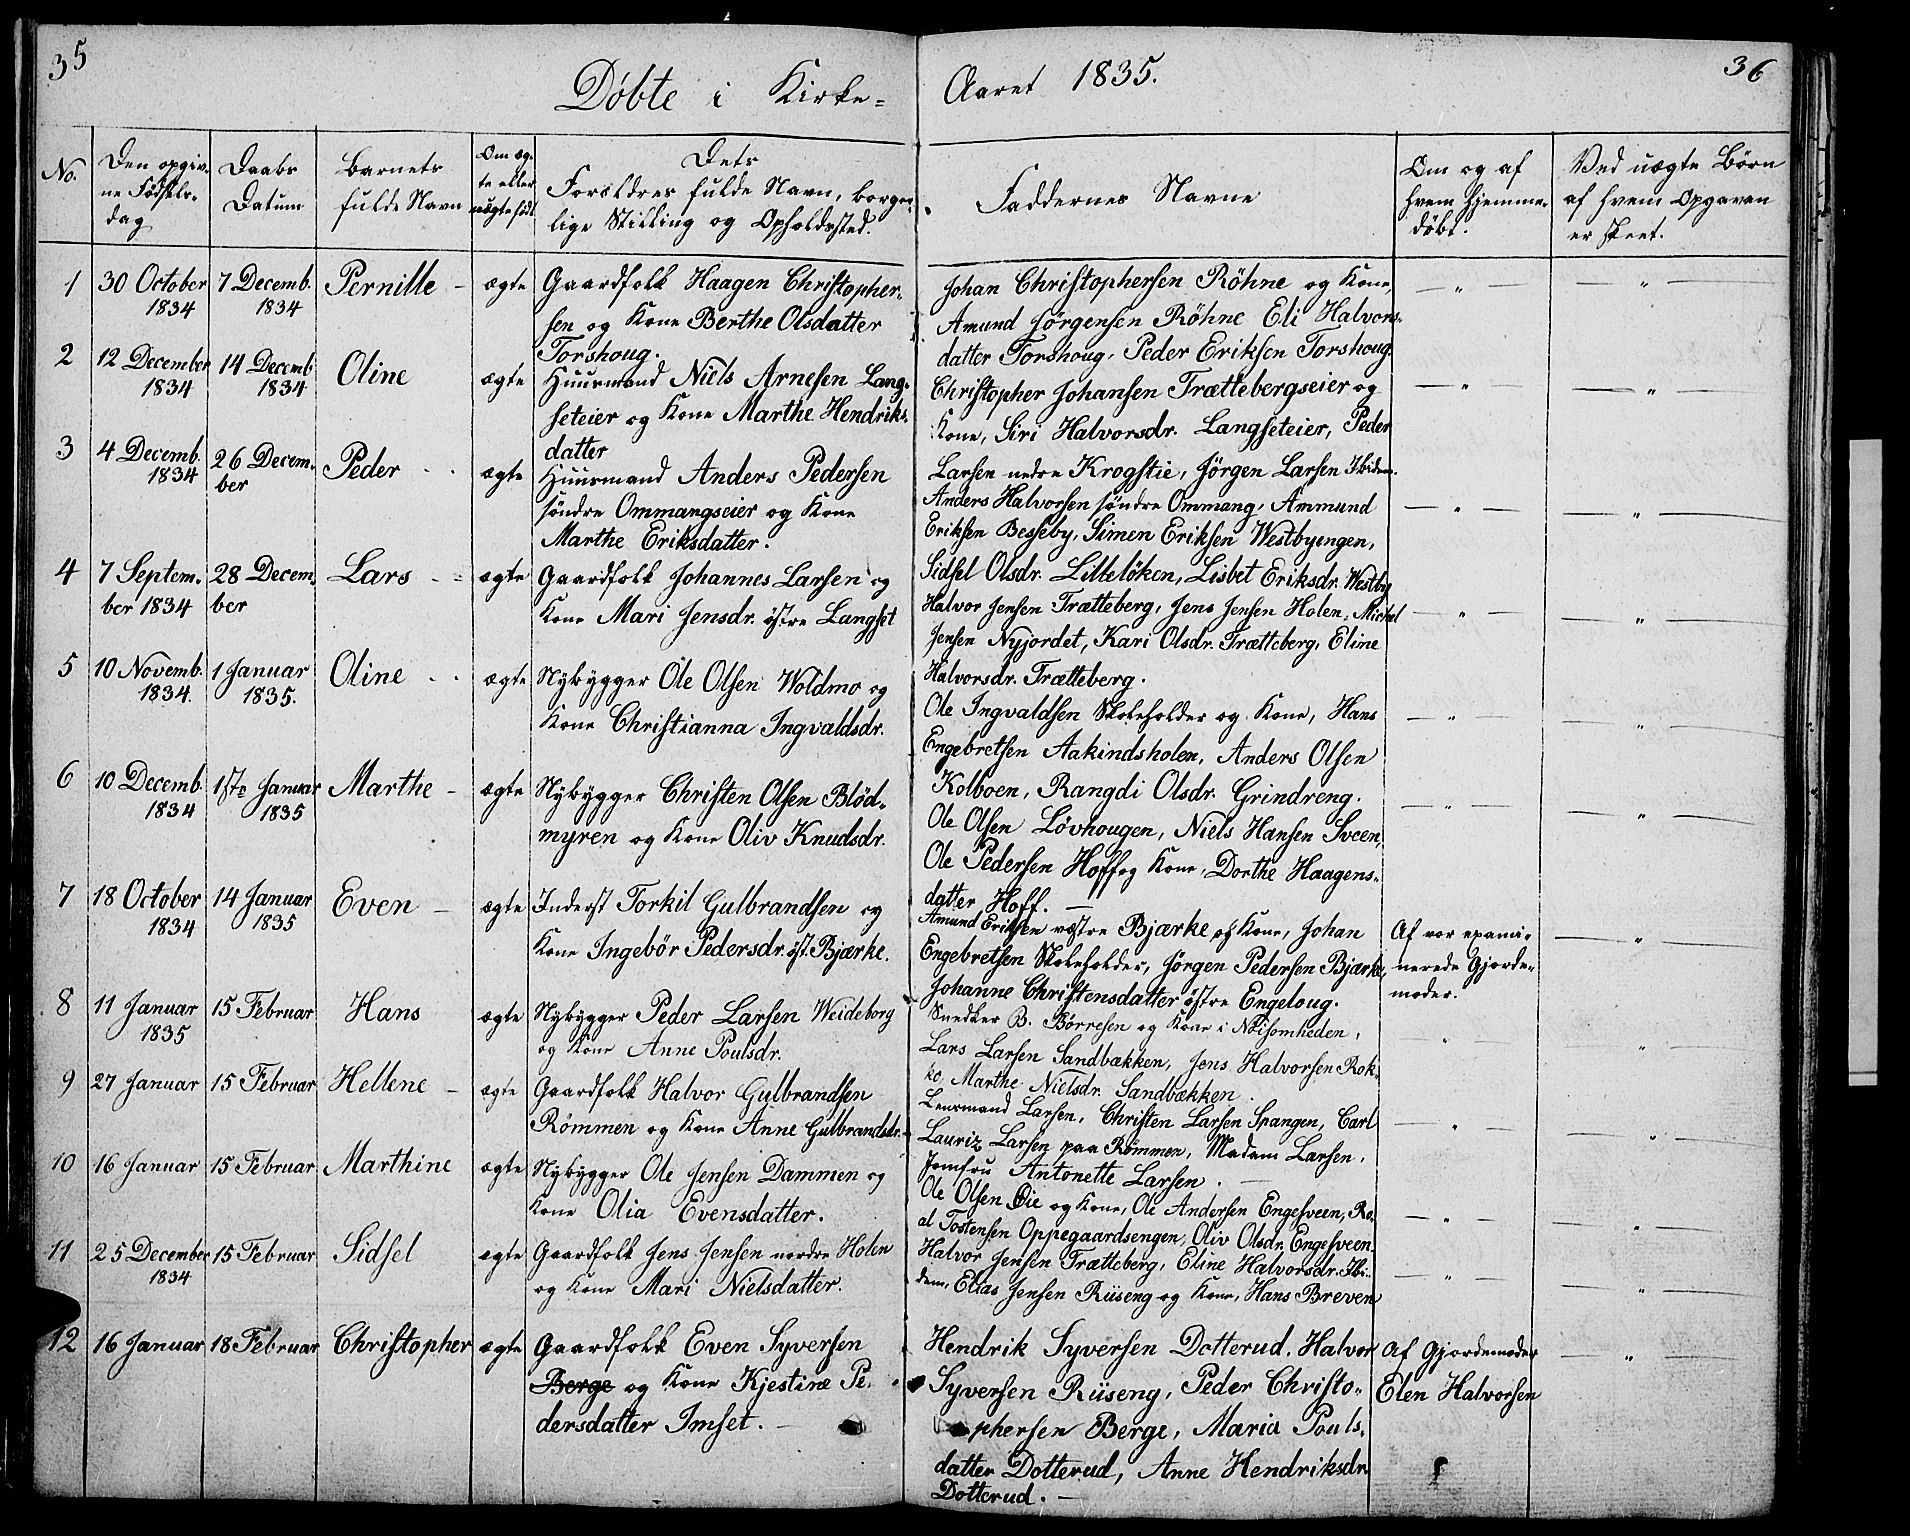 35
36
Döbte i Kirke-
Aaret 1835.
No.
Den opgiv-
ne Födsels-
dag
Daabs
Datum
Barnets
fulde Navn
Om æg-
te eller
uægte födt
Dets
Forældres fulde Navn, borger-
lige Stilling og Opholdssted.
Faddernes Navne
Om og af
hvem hjemme-
döbt.
Ved uægte Börn
af hvem Opgaven
er skeet.
1
30 October
1834
7 Decemb.
1834
Pernille -
ægte
Gaardfolk Haagen Christopher-
sen og Kone Berthe Olsdatter
Torshoug.
Johan Christophersen Röhne og Kone,
Amund Jörgensen Röhne Eli Halvors-
datter Torshoug, Peder Eriksen Torshoug.
— " —
— " —
2
12 December
1834
14 Decemb
1834
Oline
ægte
Huusmand Niels Arnesen Lang-
seteier og Kone Marthe Hendriks-
datter
Christopher Johansen Trættebergseier og
Kone, Siri Halvorsdr. Langseteier, Peder
Larsen nedre Krogstie, Jörgen Larsen Ibidem.
— " —
— " —
3
4 Decemb.
1834
26 Decem-
ber
Peder - -
ægte
Huusmand Anders Pedersen
söndre Ommangseier og Kone
Marthe Eriksdatter.
Anders Halvorsen söndre Ommang, Ammund
Eriksen Besseby, Simen Eriksen Westbyengen,
Sidsel Olsdr. Lillelöken, Lisbet Eriksdr. Westby
— " —
— " —
4
7 Septem-
ber 1834
28 Decem-
ber
Lars - -
ægte
Gaardfolk Johannes Larsen og
Kone Mari Jensdr. östre Langset
Halvor Jensen Trætteberg, Jens Jensen Holen, Michel
Jensen Nyjordet, Kari Olsdr. Trætteberg, Eline
Halvorsdr. Trætteberg.
— " —
— " —
5
10 Novemb.
1834.
1 Januar
1835.
Oline - -
ægte
Nybygger Ole Olsen Woldmo og
Kone Christianna Ingvaldsdr.
Ole Ingvaldsen Skoleholder og Kone, Hans
Engebretsen Aakindsholen, Anders Olsen
Kolboen, Rangdi Olsdr. Grindreng.
— " —
— " —
6
10 Decemb.
1834
1ste Januar
1835
Marthe -
ægte
Nybygger Christen Olsen Blöd-
myren og Kone Oliv Knudsdr.
Ole Olsen Lövhougen, Niels Hansen Sveen,
Ole Pedersen Hoff og Kone, Dorthe Haagens-
datter Hoff. —
— " —
— " —
7
18 October
1834
14 Januar
1835
Even -
ægte
Inderst Torkil Gulbrandsen og
Kone Ingebör Pedersdr. öst. Bjærke.
Amund Eriksen vestre Bjærke og Kone, Johan
Engebretsen Skoleholder, Jörgen Pedersen Bjærke,
Johanne Christensdatter östre Engeloug.
Af vor exami-
nerede Gjorde-
moder.
— " —
8
11 Januar
1835
15 Februar
Hans
ægte
Nybygger Peder Larsen Weideborg
og Kone Anne Poulsdr.
Snedker B. Börresen og Kone i Nöisomheden,
Lars Larsen Sandbækken, Jens Halvorsen Rok-
ke, Marthe Nielsdr. Sandbækken.
"
— " —
9
27 Januar
15 Februar
Hellene -
ægte
Gaardfolk Halvor Gulbrandsen
Römmen og Kone Anne Gulbrandsdr.
Lensmand Larsen, Christen Larsen Spangen, Carl
Lauriz Larsen paa Römmen, Madam Larsen,
Jomfru Antonette Larsen. —
— " —
— " —
10
16 Januar
15 Februar
Marthine
ægte
Nybygger Ole Jensen Dammen og
Kone Olia Evensdatter.
Ole Olsen Öie og Kone, Ole Andersen Engesveen, Ro-
al Tostensen Oppegaardsengen, Oliv Olsdr. Engesveen.
— " —
— " —
11
25 December
1834
15 Februar
Sidsel
ægte
Gaardfolk Jens Jensen nordre Holen
og Kone Mari Nielsdatter.
Halvor Jensen Trætteberg, Eline Halvorsdr. Ibi-
dem, Elias Jensen Riiseng og Kone, Hans Breven
— " —
— " —
12
16 Januar
18 Februar
Christopher
ægte
Gaardfolk Even Syversen
Berge og Kone Kjestine Pe-
dersdatter Imset. —
Hendrik Syversen Dotterud, Halvor
Syversen Riiseng, Peder Christo-
phersen Berge, Maria Pouls-
datter Dotterud, Anne Hendriksdr.
Dotterud. —
Af Gjordemoder
Elen Halvorsen
— " —